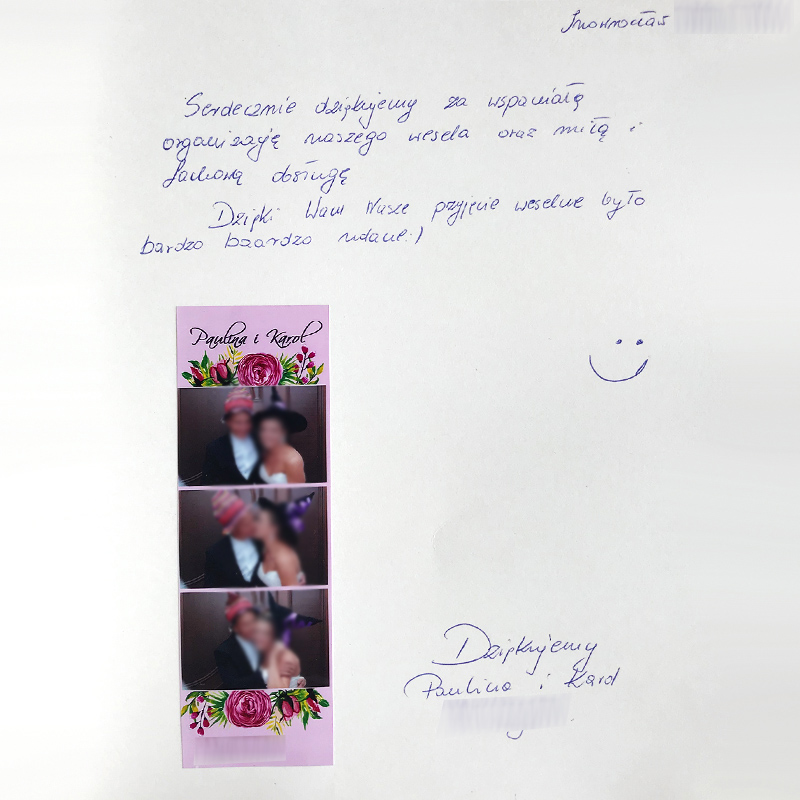 Inowrocław
Serdecznie dziękujemy za wspaniałą
organizację naszego wesela oraz miłą i
fachową obsługę
Dzięki Wam Nasze przyjęcie weselne było
bardzo baardzo udane:)
Paulina i Karol
Dziękujemy
Paulina i Karol